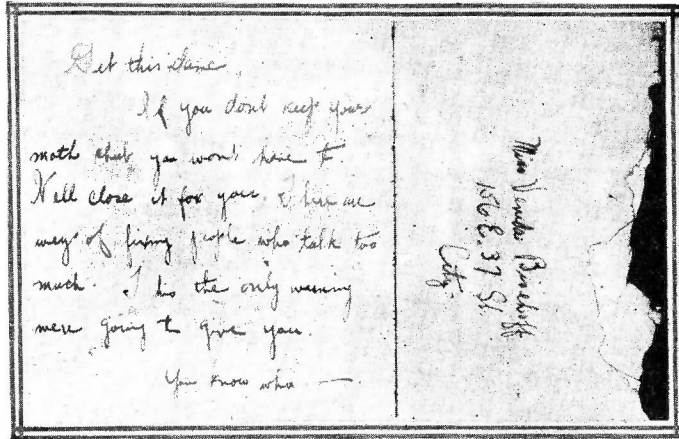 Get this Dame
If you dont keep your
moth shut you won't have to
We'll close it for you. There are
ways of fixing people who talk too
much. This the only warning
were going to give you.
You know who —
Miss Bischoff
156 E. 37 St.
City